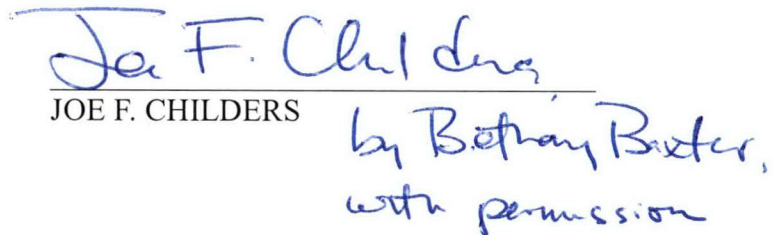 Joe F. Childers
JOE F. CHILDERS
by Bethany Baxter,
with permission